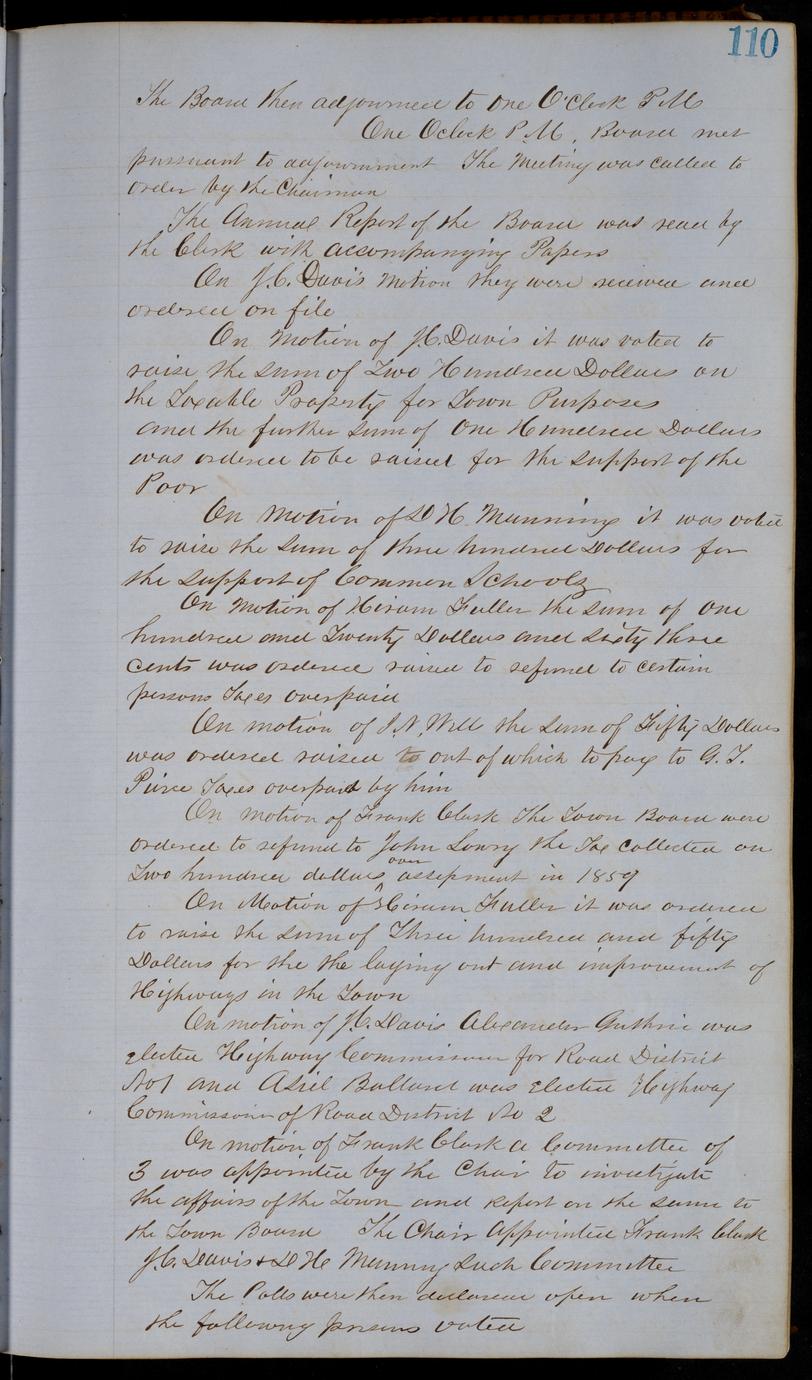 110
The Board then adjourned to one O'Clock P M
One Oclock P.M. Board met
pursuant to adjournment The Meeting was called to
order by the Chairman
The Annual Report of the Board was read by
the Clerk with accompanying Papers
On J.C. Davis Motion they were received and
ordered on file
On Motion of J.C. Davis it was voted to
raise the Sum of Two Hundred Dollars on
the Taxable Property for Town Purposes
and the further Sum of One Hundred Dollars
was ordered to be raised for the Support of the
Poor
On Motion of D H Munning it was voted
to raise the Sum of three hundred Dollars for
the Support of Common Schools
On Motion of Hiram Fuller the Sum of One
hundred and Twenty Dollars and Sixty three
cents was ordered raised to refund to certain
persons Taxes overpaid
On motion of J.N. Will the Sum of Fifty Dollars
was ordered raised to out of which to pay to G. T.
Pierce Taxes overpaid by him
On motion of Frank Clark The Town Board were
ordered to refund to John Lowry the Tax collected on
Two hundred dollars over assessment in 1859
On Motion of Hiram Fuller it was ordered
to raise the Sum of Three hundred and fifty
Dollars for the the laying out and improvement of
Highways in the Town
On motion of J.C. Davis Alexander Guthrie was
elected Highway Commissioner for Road District
No 1 and Asiel Ballard was elected Highway
Commissoin of Road District No 2
On motion of Frank Clark a Committee of
3 was appointed by the Chair to investigate
the affairs of the Town and report on the same to
the Town Board The Chair Appointed Frank Clark
J.C. Davis & D H Munning Such Committee
The Polls were then declared open when
the following persons voted